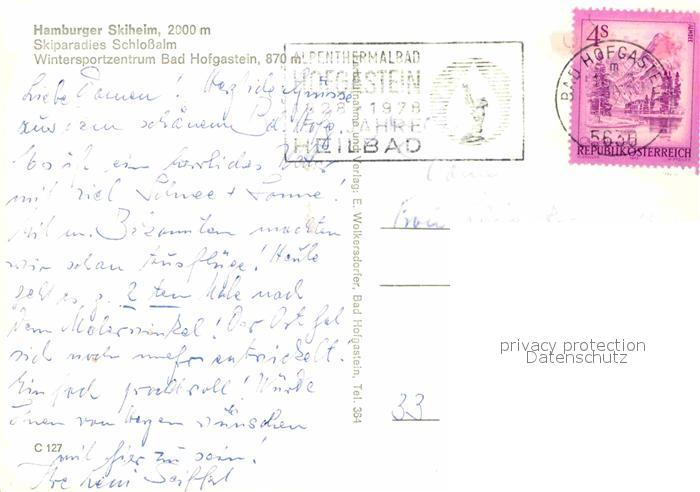 Hamburger Skiheim, 2000 m
Skiparadies Schloßalm
Wintersportzentrum Bad Hofgastein, 870 m
Liebe Damen! Herzliche Grüsse
aus dem schönen Bad Hofg.
Es ist ein herrliches
mit viel Schnee + Sonne!
Mit m. Bekannten machten
wir schon Ausflüge! Heute
geht es z. 2 ten Male nach
dem Malerwinkel! Der Ort hat
sich noch mehr entwickelt!
Einfach prachtvoll! Würde
Ihnen von Herzen wünschen
mit hier zu sein!
Ihre
C 127
ALPENTHERMALBAD
HOFGASTEIN
1828 1978
JAHRE
HEILBAD
4S
BAD HOFGASTEIN
5630
REPUBLIK ÖSTERREICH
und Verlag: E. Wolkersdorfer, Bad Hofgastein, Tel. 364
Frau
33
privacy protection
Datenschutz